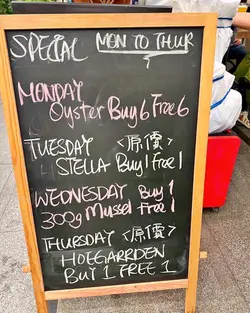 SPECIAL MON TO THUR
MONDAY
Oyster Buy 6 Free 6
TUESDAY <原價>
STELLA Buy 1 Free 1
WEDNESDAY Buy 1
300g Mussel Free 1
THURSDAY <原價>
HOEGARRDEN
BUY 1 FREE 1